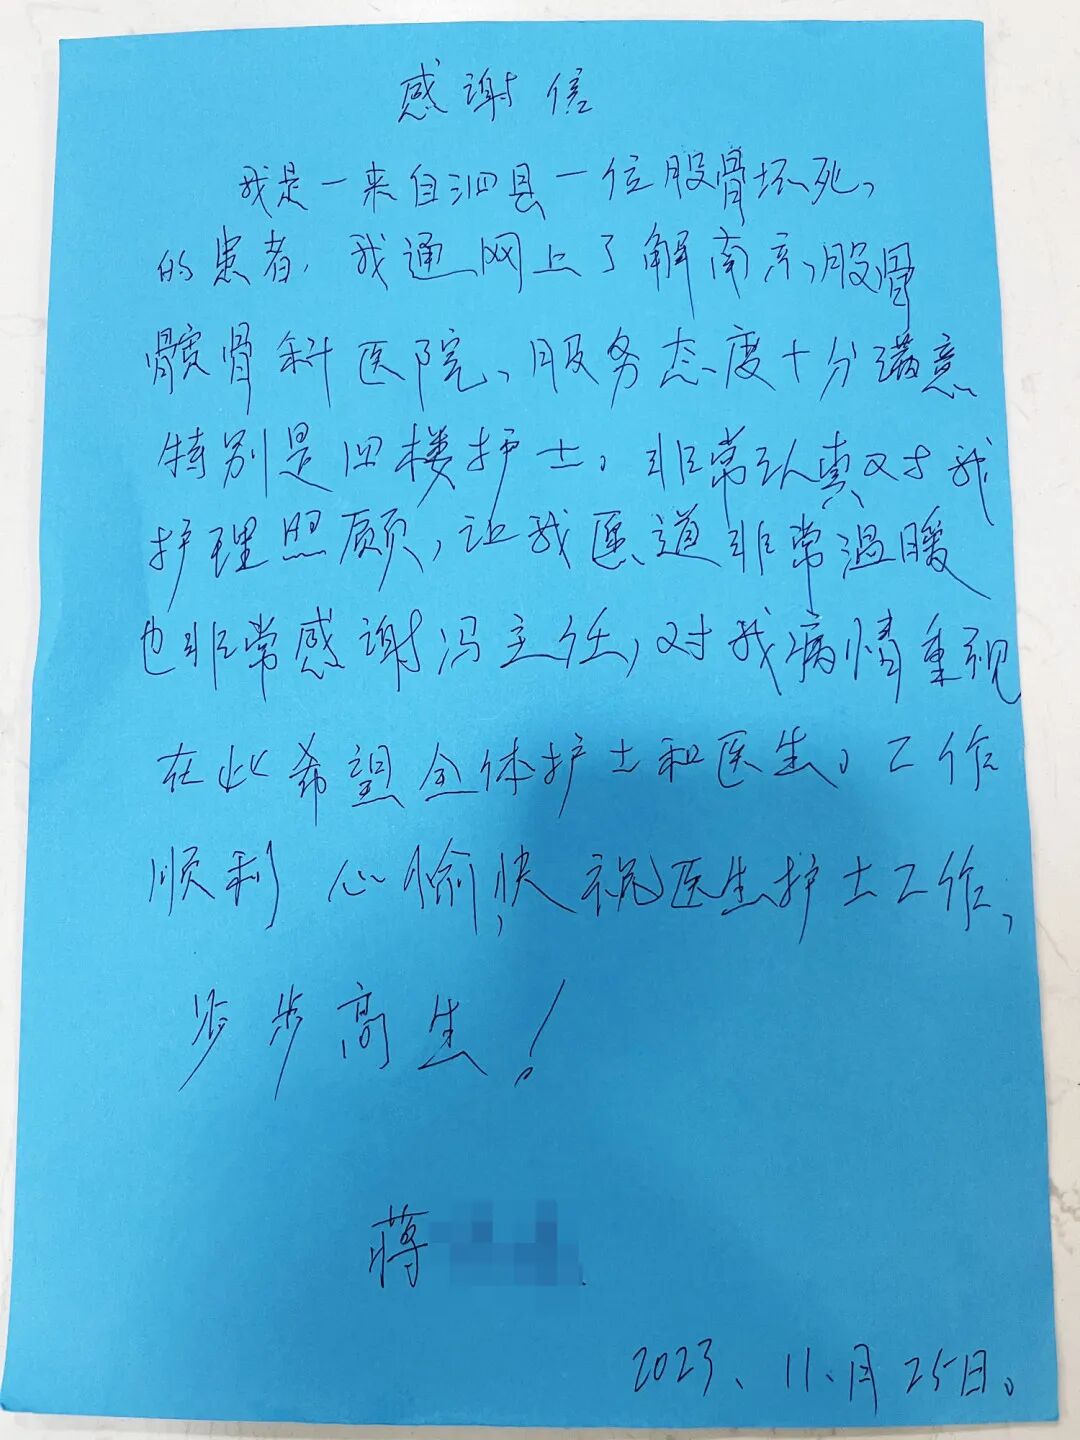 感谢信
我是一来自泗县一位股骨坏死,
的患者,我通网上了解南京,股骨
髋骨科医院、服务态度十分满意
特别是四楼护士。非常认真对我
护理照顾,让我医道非常温暖
也非常感谢冯主任,对我病情重视
在此希望全体护士和医生,工作
顺利 心愉快祝医生护士工作,
步步高生!
蒋
2023、11、月25日。